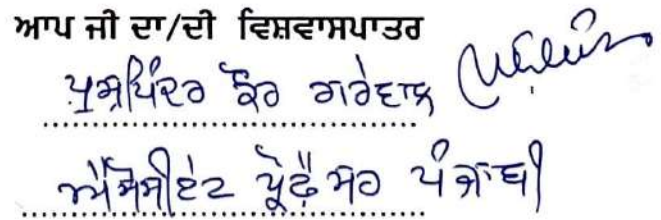 ਆਪ ਜੀ ਦਾ/ਦੀ ਵਿਸ਼ਵਾਸਪਾਤਰ
ਕੌਰ ਗਰੇਵਾਲ
ਐਸੋਸੀਏਟ ਪ੍ਰੋਫੈਸਰ ਪੰਜਾਬੀ